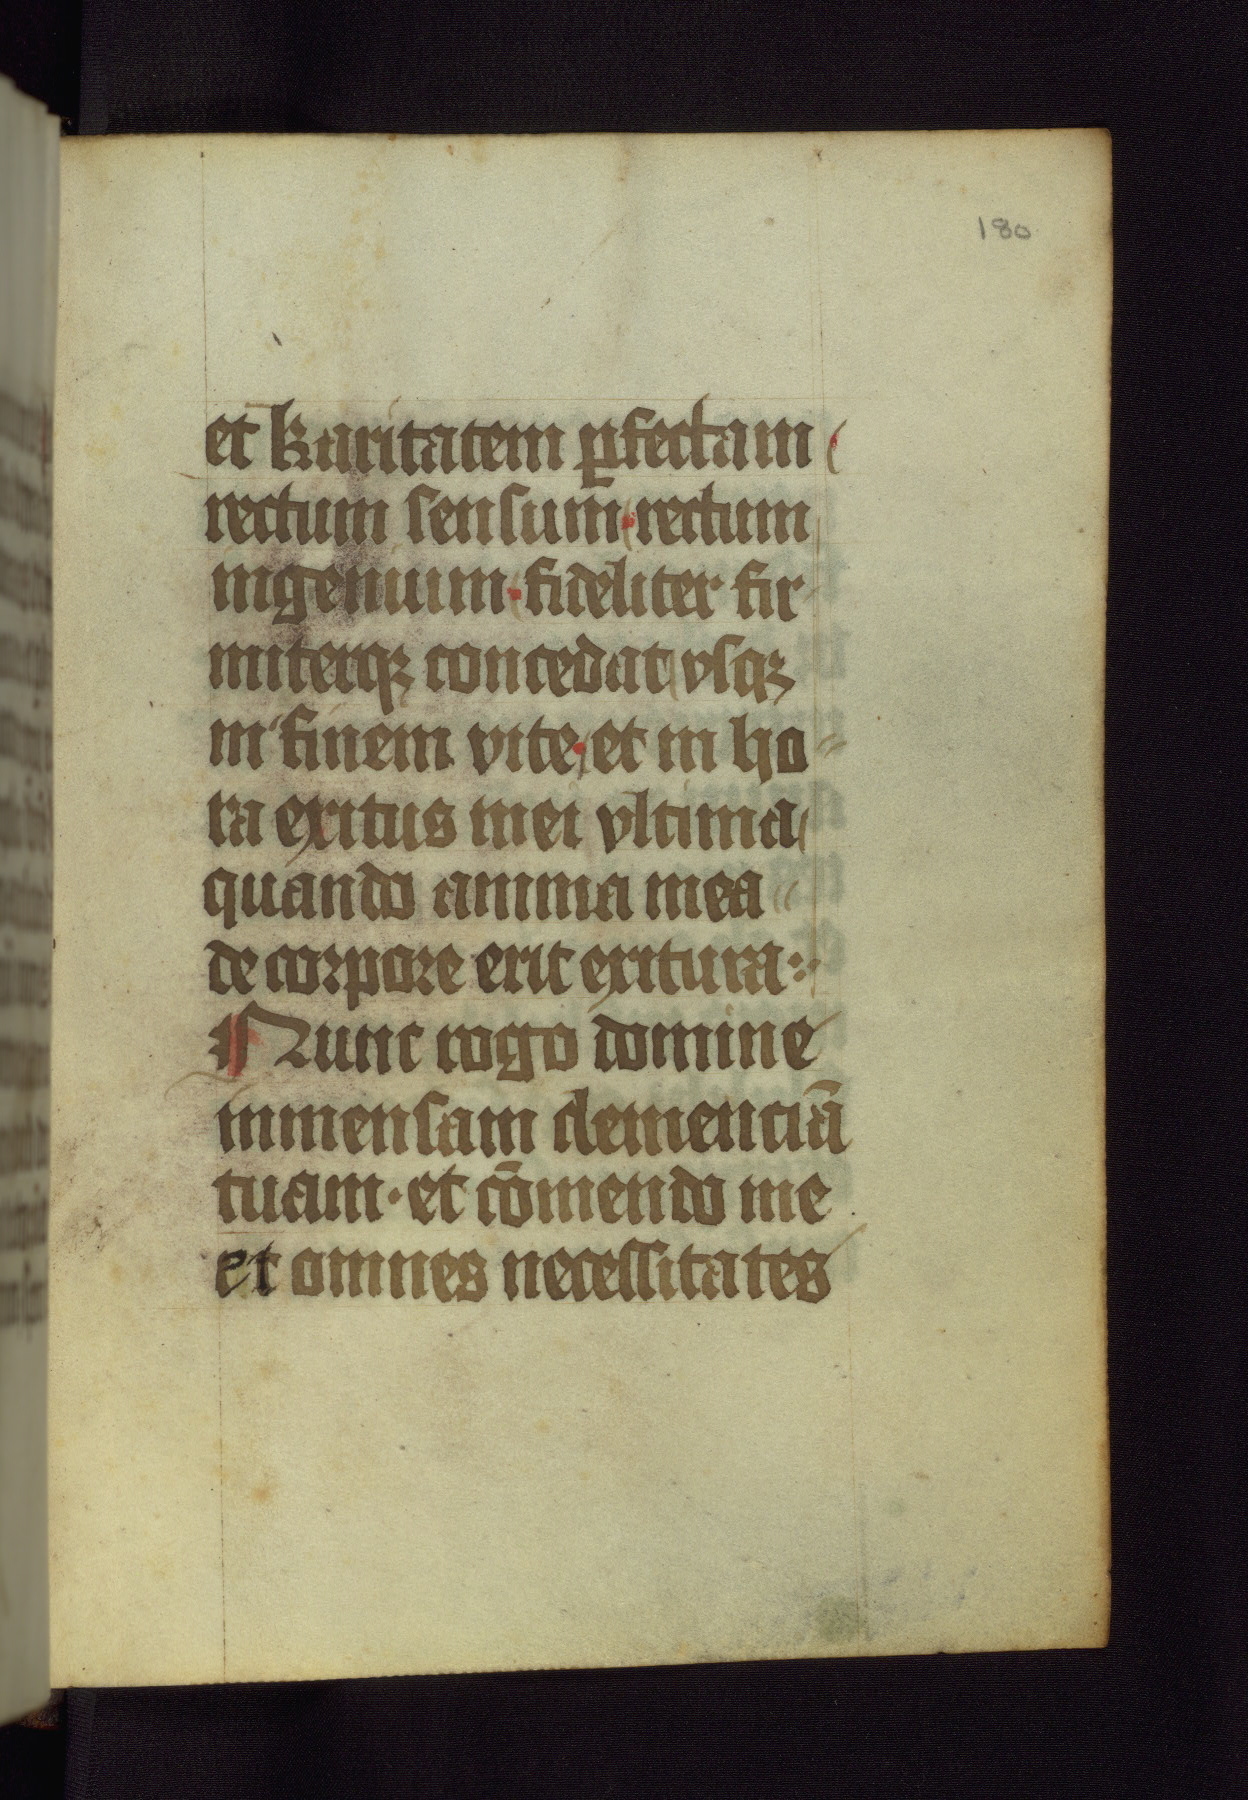 180
et karitatem ꝑfectam
rectum sensum rectum
ingenium · fideliter fir
miterqꝫ concedat vsqꝫ
in finem vite · et in ho⸗
ra exitus mei vltima
quando anima mea
de corpore erit exitura :·
Nunc rogo domine
immensam clemenciā
tuam · et cōmendo me
et omnes necessitates